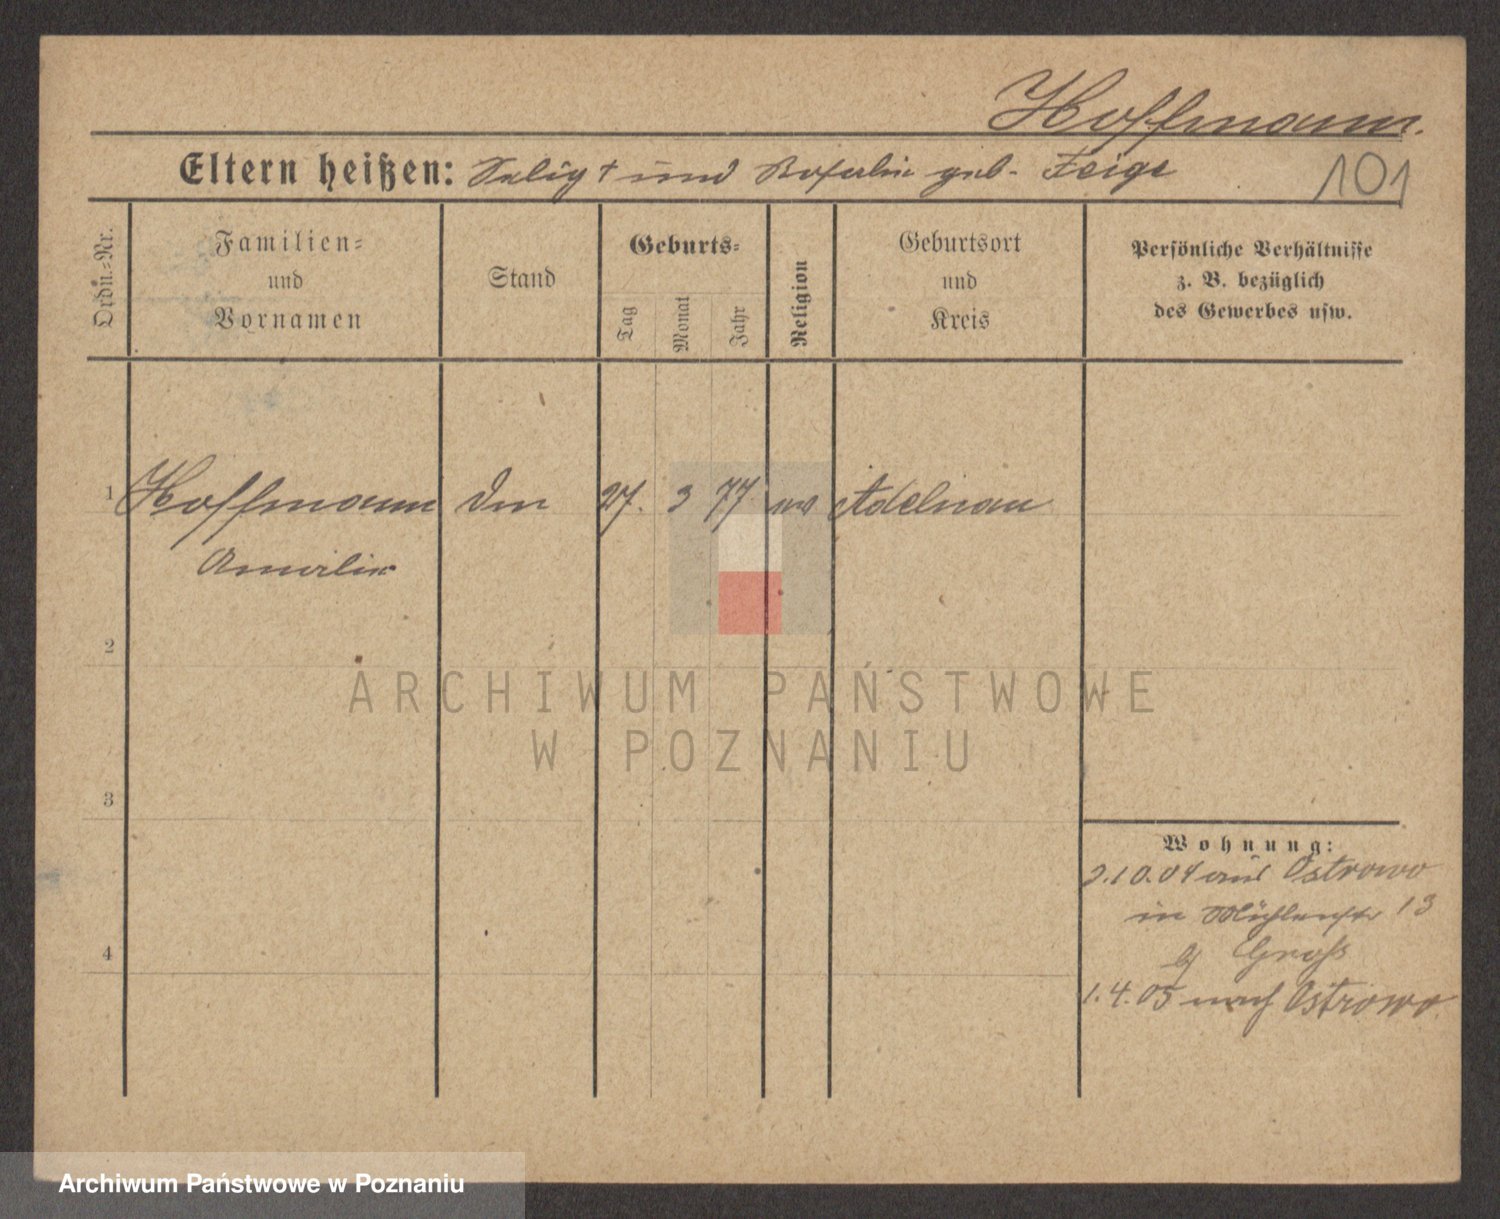 Hoffmann.
101
Eltern heißen: Selig † und Rosalie geb. Feige
Ordn.-Nr.
Familien-
und
Vornamen
Stand
Geburts-
Tag
Monat
Jahr
Religion
Geburtsort
und
Kreis
Persönliche Verhältnisse
z. B. bezüglich
des Gewerbes usw.
1 Hoffmann 27. 3 77 Adelnau
Amalie
2
ARCHIWUM PAŃSTWOWE
W POZNANIU
3
Wohnung:
2.10.04 aus Ostrowo
in Mühlenstr 13
Groß
4
1.4.05 nach Ostrowo.
Archiwum Państwowe w Poznaniu